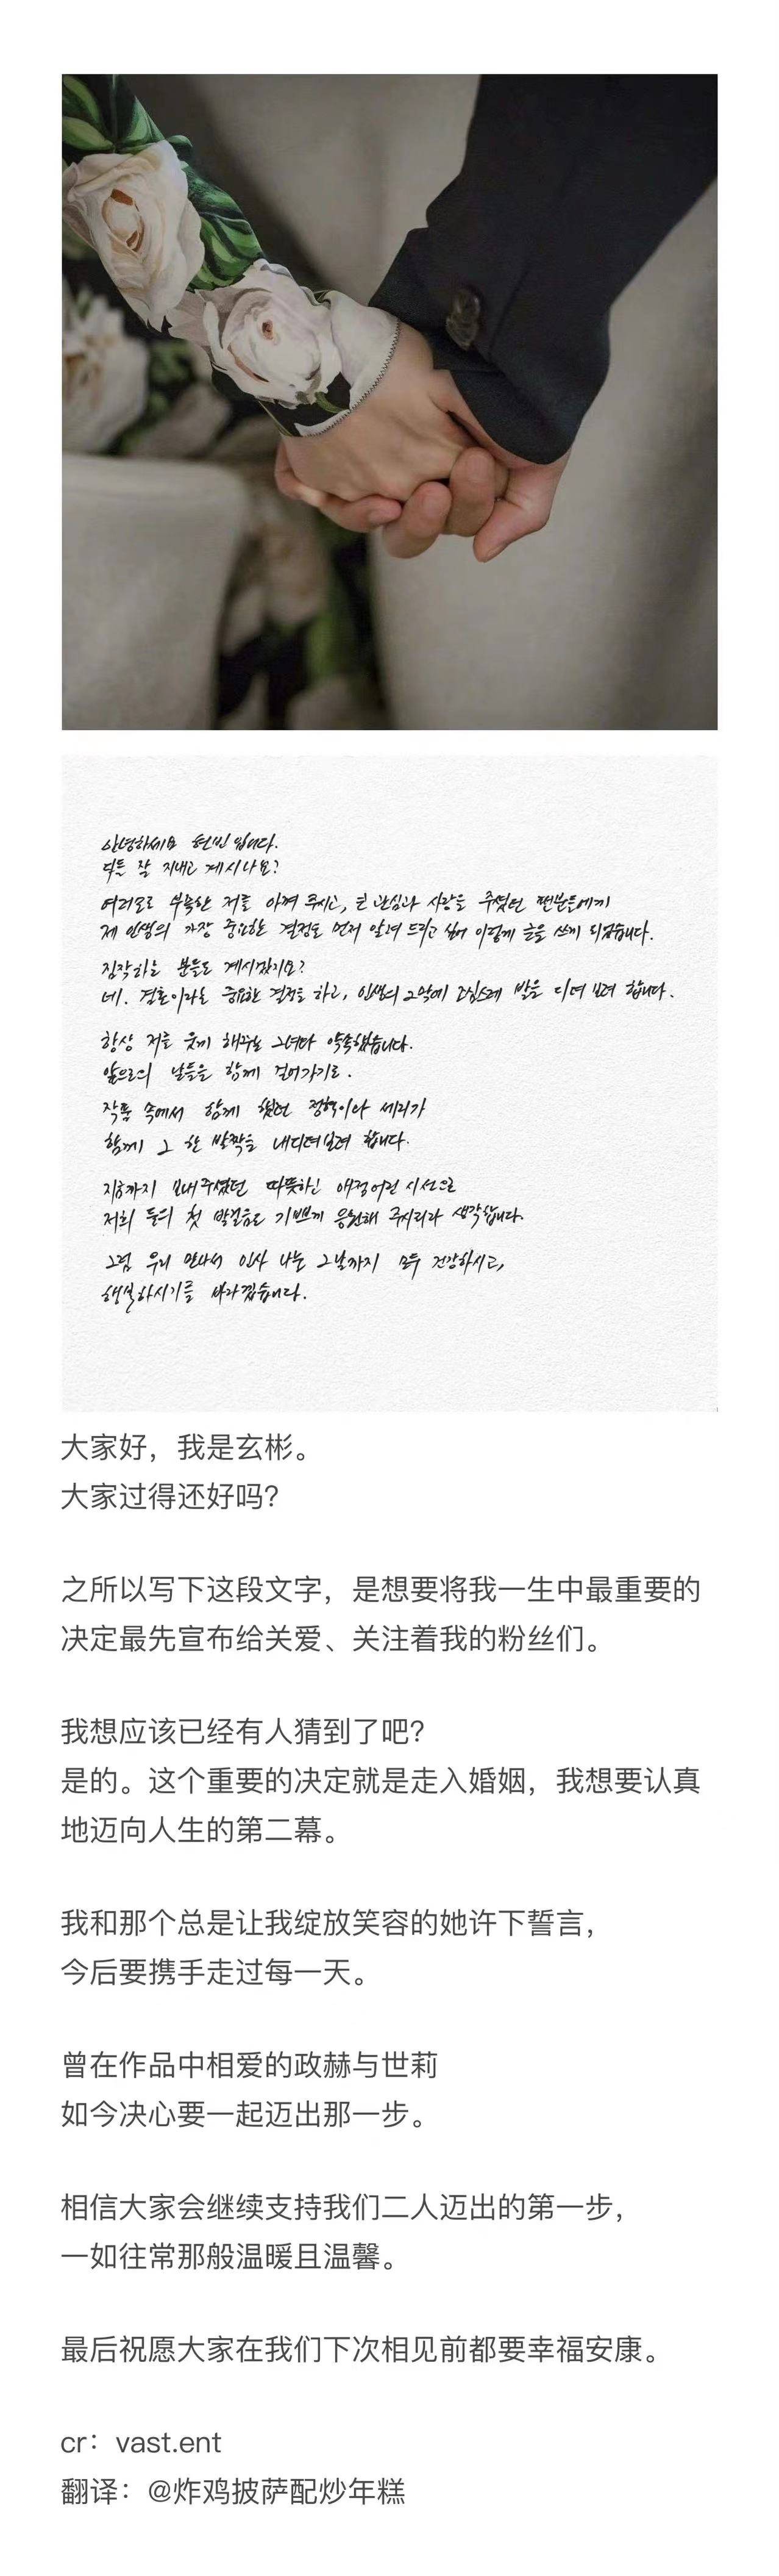 안녕하세요 현빈입니다.
다들 잘 지내고 계시나요?
여러모로 부족한 저를 아껴 주시고, 큰 관심과 사랑을 주셨던 팬분들에게
제 인생의 가장 중요한 결정을 먼저 알려 드리고 싶어 이렇게 글을 쓰게 되었습니다.
짐작하는 분들도 계시겠지요?
네. 결혼이라는 중요한 결정을 하고, 인생의 2막에 조심스레 발을 디뎌 보려 합니다.
항상 저를 웃게 해주는 그녀와 약속했습니다.
앞으로의 날들을 함께 걸어가기로.
작품 속에서 함께 했던 정혁이와 세리가
함께 그 한 발짝을 내디뎌보려 합니다.
지금까지 보내주셨던 따뜻하신 애정어린 시선으로
저희 둘의 첫 발걸음도 기쁘게 응원해 주시리라 생각합니다.
그럼 우리 만나서 인사 나눌 그날까지 모두 건강하시고,
행복하시기를 바라겠습니다.
大家好，我是玄彬。
大家过得还好吗？
之所以写下这段文字，是想要将我一生中最重要的
决定最先宣布给关爱、关注着我的粉丝们。
我想应该已经有人猜到了吧？
是的。这个重要的决定就是走入婚姻，我想要认真
地迈向人生的第二幕。
我和那个总是让我绽放笑容的她许下誓言，
今后要携手走过每一天。
曾在作品中相爱的政赫与世莉
如今决心要一起迈出那一步。
相信大家会继续支持我们二人迈出的第一步，
一如往常那般温暖且温馨。
最后祝愿大家在我们下次相见前都要幸福安康。
cr：vast.ent
翻译：@炸鸡披萨配炒年糕